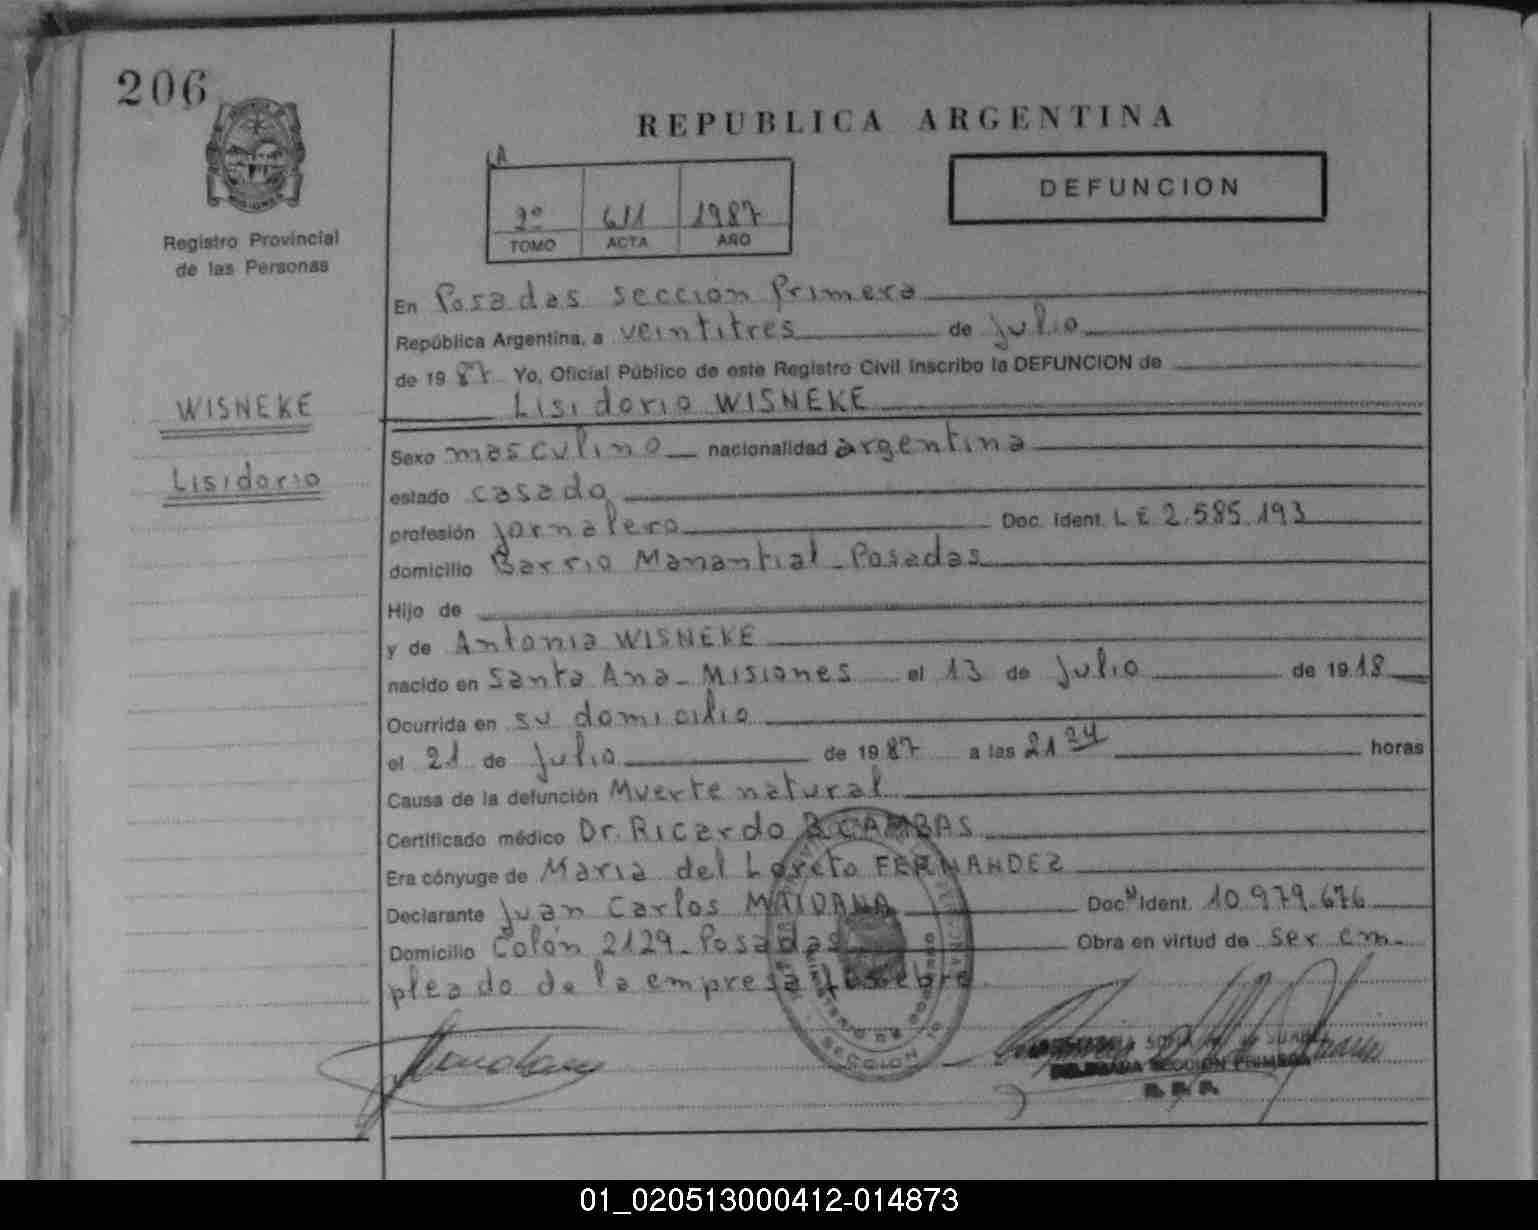 206
REPUBLICA ARGENTINA
DEFUNCION
2º 611 1987
TOMO ACTA AÑO
Registro Provincial
de las Personas
WISNEKE
Lisidorio
En Posadas sección Primera
República Argentina, a veintitres de julio
de 1987 Yo, Oficial Público de este Registro Civil inscribo la DEFUNCION de
Lisidorio WISNEKE
Sexo masculino nacionalidad argentina
estado casado
profesión jornalero Doc. Ident. L E 2.585.193
domicilio Barrio Manantial - Posadas
Hijo de
y de Antonia WISNEKE
nacido en Santa Ana - Misiones el 13 de julio de 1918
Ocurrida en su domicilio
el 21 de julio de 1987 a las 21 horas
Causa de la defunción Muerte natural
Certificado médico Dr. Ricardo B CAMBAS
Era cónyuge de Maria del Loreto FERNANDEZ
Declarante Juan Carlos MAIDANA Doc Ident. 10.979.676
Domicilio Colón 2129 - Posadas Obra en virtud de ser em-
pleado de la empresa funebre.
SECCION 1a
DELEGADA SECCION PRIMERA
R. P. P.
01_020513000412-014873